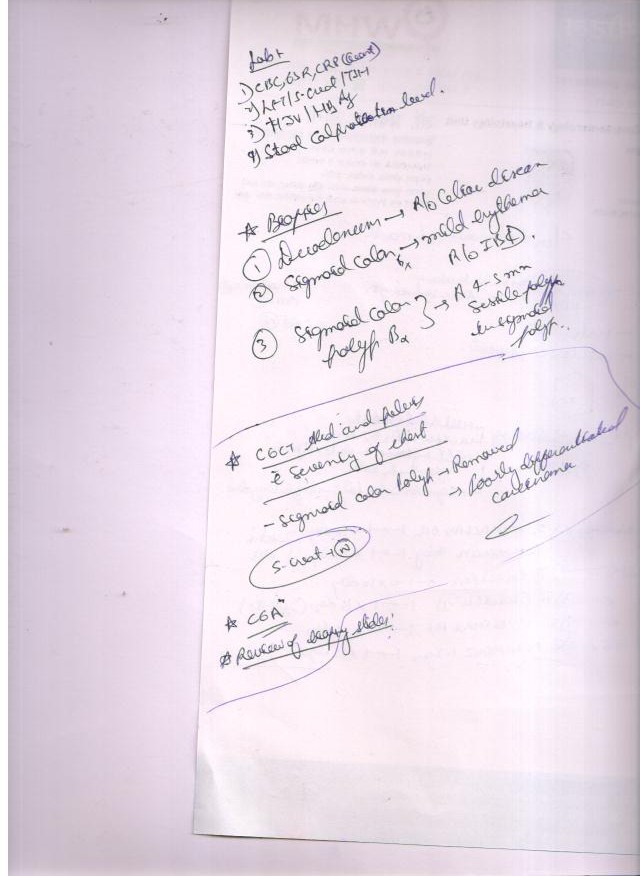 Labs
1) CBC, ESR, CRP (Quant)
2) LFT/S.creat/TSH
3) HIV/HBsAg
4) Stool Calprotectin level.
☆ Biopsies
① Duodenum → R/o Celiac disease
② Sigmoid colon Bx → mild erythema
R/o IBD.
③ Sigmoid colon } → A 4-5 mm
polyp Bx sessile polyp
in sigmoid
polyp..
☆ CECT Abd and pelvis
c̄ Screening of chest
- Sigmoid colon polyp → Removed
→ Poorly differentiated
carcinoma
S. creat → Ⓝ
☆ CEA
☆ Review of biopsy slides!